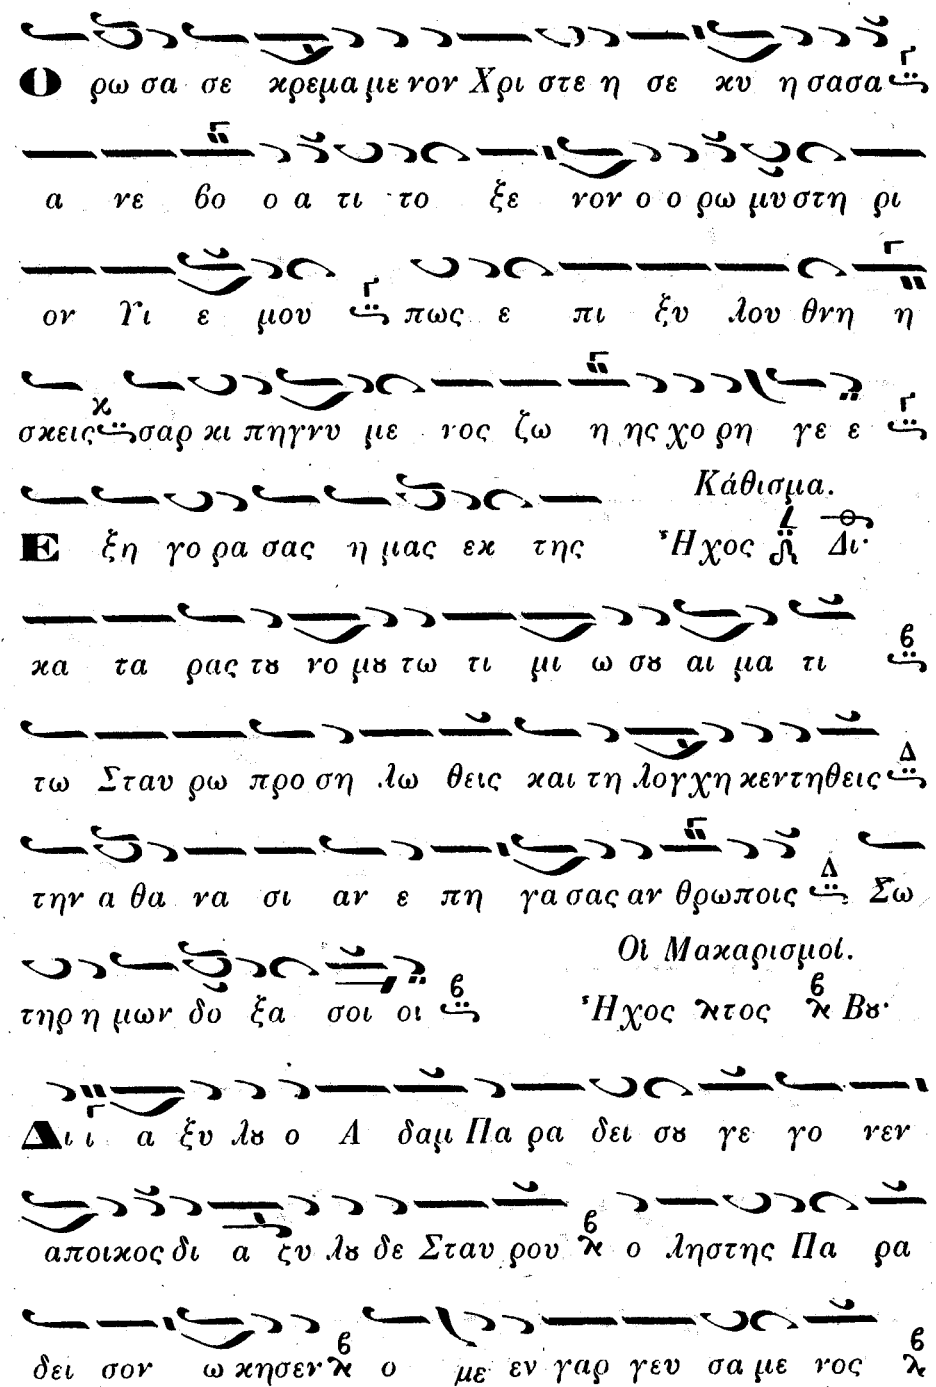 Ο ρω σα σε κρεμα με νον Χρι στε η σε κυ η σασα
α νε βο ο α τι το ξε νον ο ο ρω μυ στη ρι
ον Υι ε μου πως ε πι ξυ λου θνη η
σκεις σαρ κι πηγνυ με νος ζω η ης χο ρη γε ε
Κάθισμα.
Ε ξη γο ρα σας η μας εκ της Ἦχος Δι·
κα τα ρας τȣ νο μȣ τω τι μι ω σȣ αι μα τι
τω Σταυ ρω προ ση λω θεις και τη λογχη κεντηθεις
την α θα να σι αν ε πη γα σας αν θρωποις Σω
Οἱ Μακαρισμοί.
τηρ η μων δο ξα σοι οι Ἦχος λτος Βȣ·
Δι ι α ξυ λȣ ο Α δαμ Πα ρα δει σȣ γε γο νεν
αποικος δι α ξυ λȣ δε Σταυ ρου ο ληστης Πα ρα
δει σον ω κησεν ο με εν γαρ γευ σα με νος